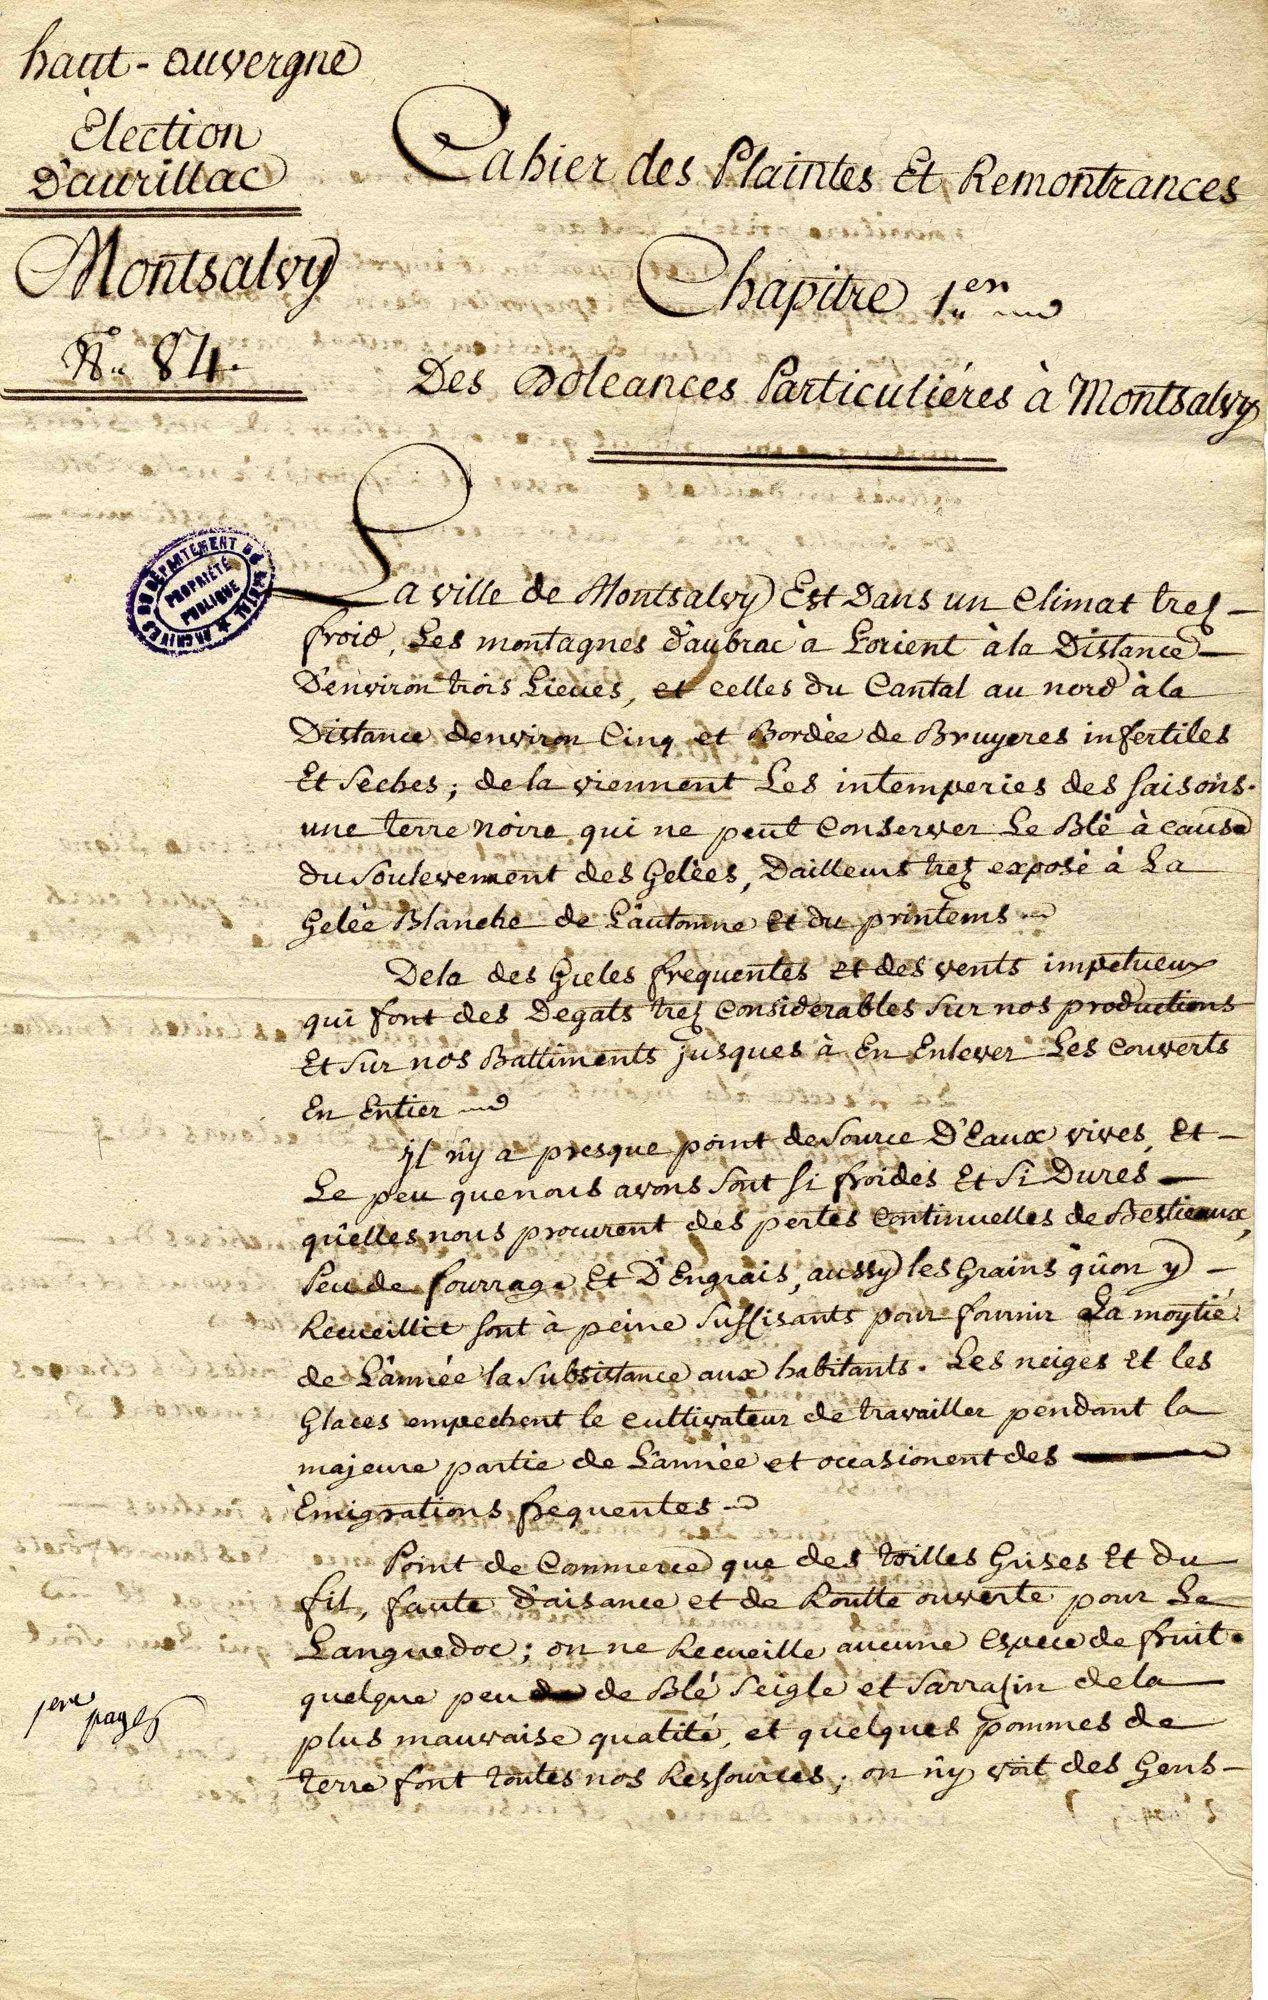 haut-auvergne
Election
D'aurillac
Montsalvy
N.° 84.
Cahier des Plaintes Et Remontrances
Chapitre 1.er
Des Doleances Particuliéres à Montsalvy
ARCHIVES DU DÉPARTEMENT DU
PROPRIÉTÉ
PUBLIQUE
La ville de Montsalvy Est Dans un Climat trez
froid, Les montagnes d'aubrac a L'orient à la Distance
D'environ trois Lieues, et celles du Cantal au nord à la
Distance denviron Cinq et Bordée de Bruyeres infertiles
Et Seches; de la viennent Les intemperies des saisons.
une terre noire qui ne peut Conserver Le Blé à cause
du Soulevement des Gelées, Dailleurs trez exposé à La
Gelée Blanche de L'automne et du printems
Dela des Greles frequentes et des vents impetueux
qui font des Degats trez Considerables Sur nos productions
Et Sur nos Battiments jusques à En Enlever Les Couverts
En Entier
jl n'y a presque point de Source D'Eaux vives, Et
Le peu que nous avons Sont Si froides Et Si Dures
qu'elles nous procurent des pertes Continuelles de Bestieaux,
Peu de fourrage Et D'Engrais, aussy les Grains qu'on y
Recueillit sont à peine Suffisants pour fournir La moytié
de L'année la Subsistance aux habitants. Les neiges et les
Glaces empechent le cultivateur de travailler pendant la
majeure partie de L'année et occasionent des
Emigrations frequentes
Point de Commerce que des toilles Grises Et du
fil, faute d'aisance et de Routte ouverte pour Le
Languedoc; on ne Recueille aucune espece de fruit.
quelque peu de Blé Seigle et Sarrasin de la
plus mauvaise qualité, et quelques pommes de
terre font toutes nos Ressources; on n'y voit des Gens
1ere page